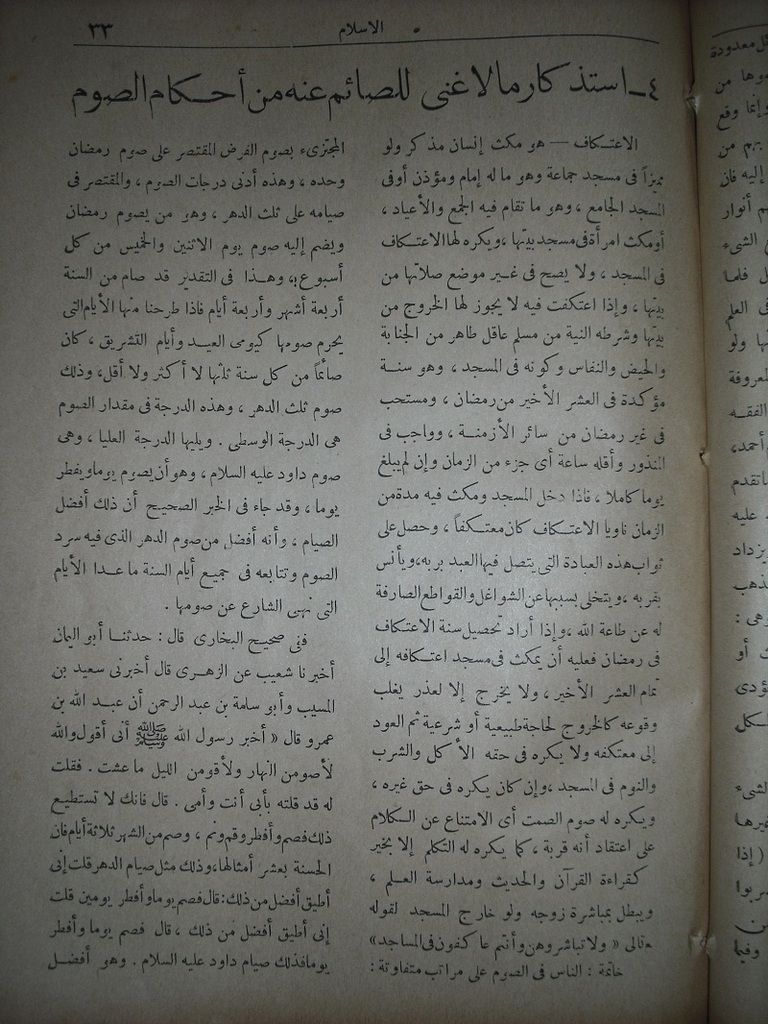 الاسلام
٣٣
٤ـ استذكار مالاغنى للصائم عنه من أحكام الصوم
الاعتكاف — هو مكث إنسان مذكر ولو
مميزاً فى مسجد جماعة وهو ما له إمام ومؤذن أوفى
المسجد الجامع ، وهو ما تقام فيه الجمع والأعياد ،
أومكث امرأة فى مسجد بيتها ، ويكره لها الاعتكاف
فى المسجد ، ولا يصح فى غير موضع صلاتها من
بيتها ، وإذا اعتكفت فيه لا يجوز لها الخروج من
بيتها وشرطه النية من مسلم عاقل طاهر من الجنابة
والحيض والنفاس وكونه فى المسجد ، وهو سنة
مؤكدة فى العشر الأخير من رمضان ، ومستحب
فى غير رمضان من سائر الأزمنة ، وواجب فى
المنذور وأقله ساعة أى جزء من الزمان وإن لم يبلغ
يوما كاملا ، فاذا دخل المسجد ومكث فيه مدة من
الزمان ناويا الاعتكاف كان معتكفاً ، وحصل على
ثواب هذه العبادة التى يتصل فيها العبد بربه ، ويأنس
بقربه ، ويتخلى بسببها عن الشواغل والقواطع الصارفة
له عن طاعة الله ، وإذا أراد تحصيل سنة الاعتكاف
فى رمضان فعليه أن يمكث فى مسجد اعتكافه إلى
تمام العشر الأخير ، ولا يخرج إلا لعذر يغلب
وقوعه كالخروج لحاجة طبيعية أو شرعية ثم العود
إلى معتكفه ولا يكره فى حقه الأكل والشرب
والنوم فى المسجد ، وإن كان يكره فى حق غيره ،
ويكره له صوم الصمت أى الامتناع عن الكلام
على اعتقاد أنه قربة ، كما يكره له التكلم إلا بخير
كقراءة القرآن والحديث ومدارسة العلم ،
ويبطل بمباشرة زوجه ولو خارج المسجد لقوله
تعالى « ولا تباشروهن وأنتم عاكفون فى المساجد»
خاتمة : الناس فى الصوم على مراتب متفاوتة :
المجتزىء بصوم الفرض المقتصر على صوم رمضان
وحده ، وهذه أدنى درجات الصوم ، والمقتصر فى
صيامه على ثلث الدهر ، وهو من يصوم رمضان
ويضم إليه صوم يوم الاثنين والخميس من كل
أسبوع ، وهذا فى التقدير قد صام من السنة
أربعة أشهر وأربعة أيام فاذا طرحنا منها الأيام التى
يحرم صومها كيومى العيد وأيام التشريق ، كان
صائماً من كل سنة ثلثها لا أكثر ولا أقل، وذلك
صوم ثلث الدهر ، وهذه الدرجة فى مقدار الصوم
هى الدرجة الوسطى . ويليها الدرجة العليا ، وهى
صوم داود عليه السلام ، وهو أن يصوم يوما ويفطر
يوما ، وقد جاء فى الخبر الصحيح أن ذلك أفضل
الصيام ، وأنه أفضل من صوم الدهر الذى فيه سرد
الصوم وتتابعه فى جميع أيام السنة ما عدا الأيام
التى نهى الشارع عن صومها .
فى صحيح البخارى قال : حدثنا أبو اليمان
أخبرنا شعيب عن الزهرى قال أخبرنى سعيد بن
المسيب وأبو سلمة بن عبد الرحمن أن عبد الله بن
عمرو قال « أخبر رسول الله ﷺ أنى أقول والله
لأصومن النهار ولأقومن الليل ما عشت . فقلت
له قد قلته بأبى أنت وأمى . قال فانك لا تستطيع
ذلك فصم وأفطر وقم ونم ، وصم من الشهر ثلاثة أيام فان
الحسنة بعشر أمثالها ، وذلك مثل صيام الدهر قلت إنى
أطيق أفضل من ذلك : قال فصم يوما وأفطر يومين قلت
إنى أطيق أفضل من ذلك ، قال فصم يوما وأفطر
يوما فذلك صيام داود عليه السلام . وهو أفضل